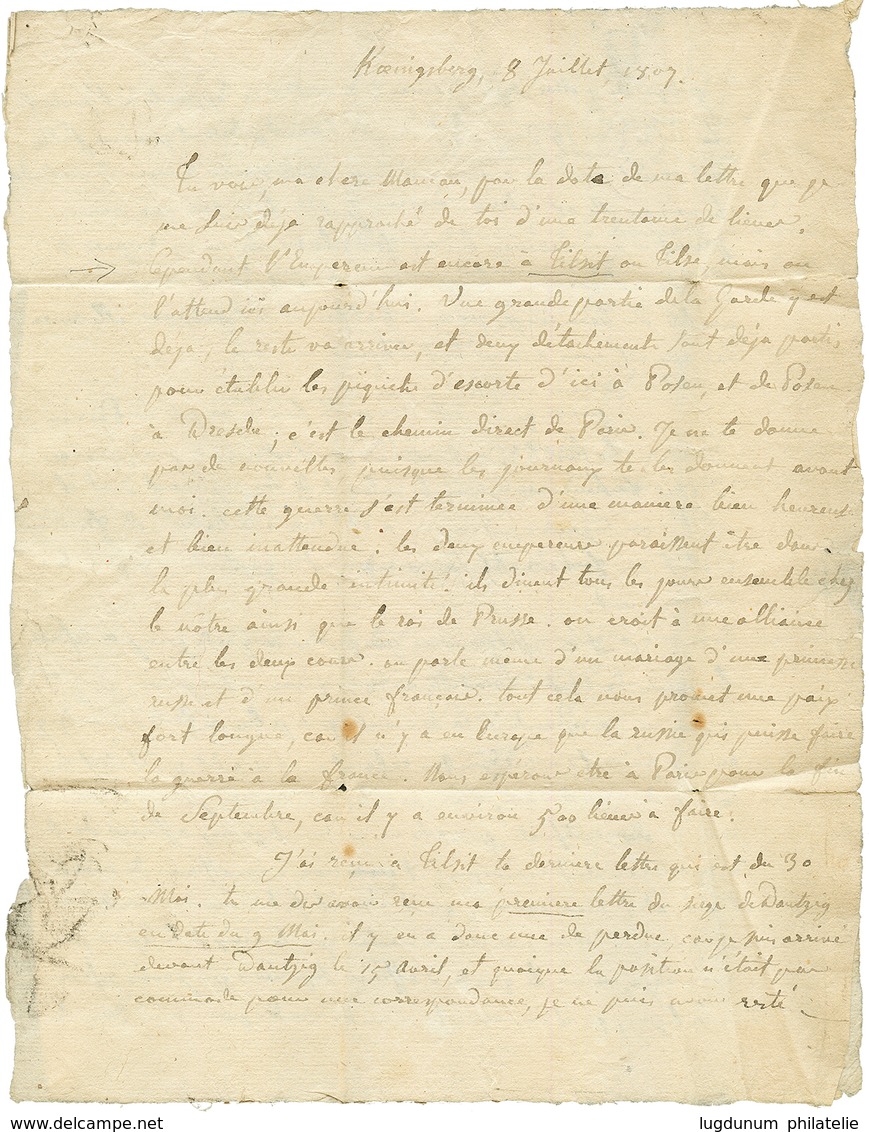 Kœnigsberg, 8 Juillet, 1807.
Tu vois, ma chere Maman, par la date de ma lettre que je
me suis déja rapproché de toi d'une trentaine de lieues.
Cependant l'Empereur est encore à Tilsit ou Tilse, mais on
l'attend ici aujourd'hui. Une grande partie de la Garde y est
déja, le reste va arriver, et deux détachements sont déja partis
pour établir les piquets d'escorte d'ici à Posen, et de Posen
à Dresde ; c'est le chemin direct de Paris. Je ne te donne
pas de nouvelles, puisque les journaux te les donnent avant
moi. cette guerre s'est terminée d'une maniere bien heureuse
et bien inattendue : les deux empereurs paraissent être dans
la plus grande intimité. ils dinent tous les jours ensemble chez
le nôtre ainsi que le roi de Prusse. on croit à une alliance
entre les deux cours. on parle même d'un mariage d'une princesse
russe et d'un prince français. tout cela nous promet une paix
fort longue, car il n'y a en Europe que la russie qui puisse faire
la guerre à la france. Nous espérons être à Paris pour la fin
de Septembre, car il y a environ 500 lieues à faire.
J'ai reçu à Tilsit ta derniere lettre qui est du 30
Mai. tu me dis avoir reçu ma premiere lettre du siege de Dantzig
en date du 9 Mai. il y en a donc une de perdue, car je suis arrivé
devant Dantzig le 15 avril, et quoique la position n'était pas
commode pour une correspondance, je ne puis avoir resté
www.delcampe.net
lugdunum philatelie